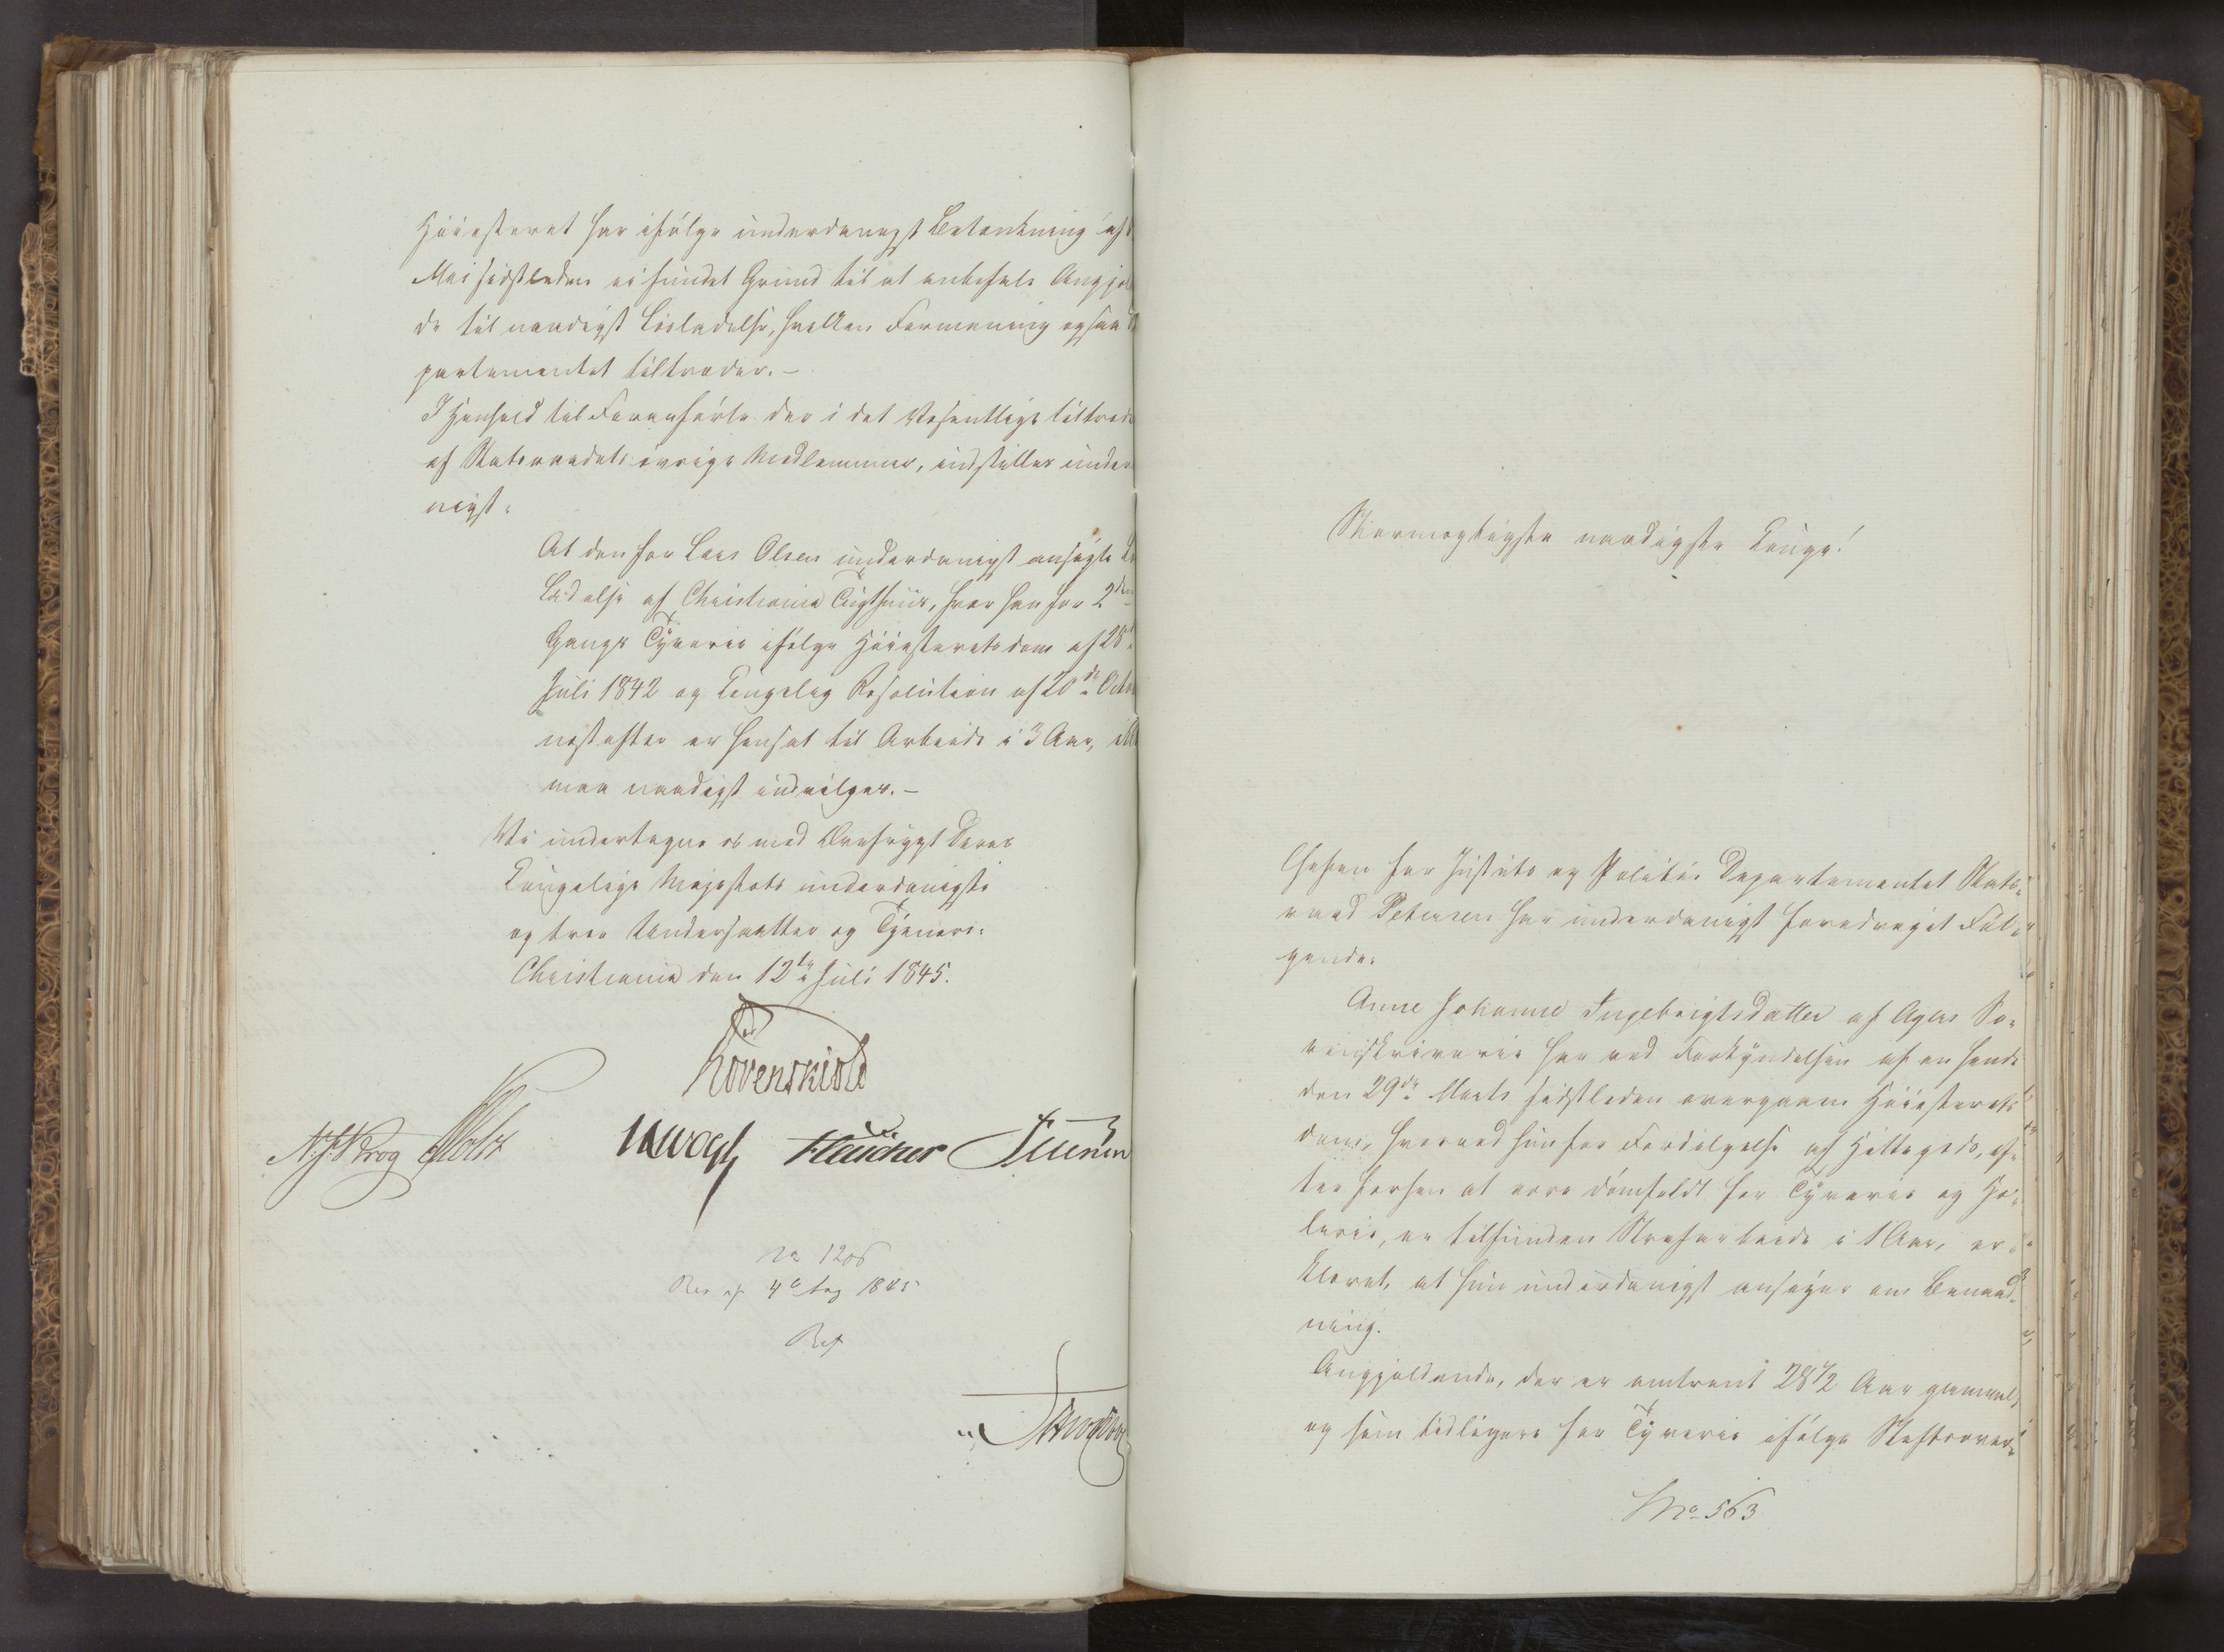 Høiesteret har ifølge underdanigst Betænkning af
Mai sidstleden ei fundet Grund til at anbefale Angjel
de til naadigst Løsladelse, hvilken Formening ogsaa De
partementet tiltræder.-
I Henhold til Foranførte der i det Væsentlige tiltræde
af Statsraadets øvrige Medlemmer, indstilles under
nigst:
At den for Lars Olsen underdanigst ansøgte Lø
ladelse af Christiania Tugthuus, hvor han for 2den
Gangs Tyverie ifølge Høiesteretsdom af 28d
Juli 1842 og Kongelig Resolution af 20de Octo
næstefter er hensat til Arbeide i 3 Aar, ikke
maa naadigst indvilges.-
Vi undertegne os med Ærefrygt Deres
Kongelige Majestæts underdanigste
og troe Undersaatter og Tjenere.
Christiania den 12te Juli 1845.
Løvenskiold
N. J. Krog Holst Vogt Fleischer Petersen
No 1206
Res af 4de Aug 1845
Stormægtigste naadigste Konge!
Chefen for Justits og Politie Departementet Stats-
raad Petersen har underdanigst foredraget Føl-
gende.
Anne Johanne Ingebrigtsdatter af Agers So-
renskriverie har ved Forkyndelsen af en hende
den 29de Marts sidstleden overgaaen Høiesterets
dom, hvorved hun for Fordølgelse af Hittegods, ef-
ter forhen at være domfeldt for Tyverie og Hæ-
lerie, er tilfunden Strafarbeide i 1 Aar, er-
klæret, at hun underdanigst ansøger om Benaad-
ning.
Angjeldende, der er omtrent 28 1/2 Aar gammel,
og som tidligere for Tyverie ifølge Stiftsover-
No 563